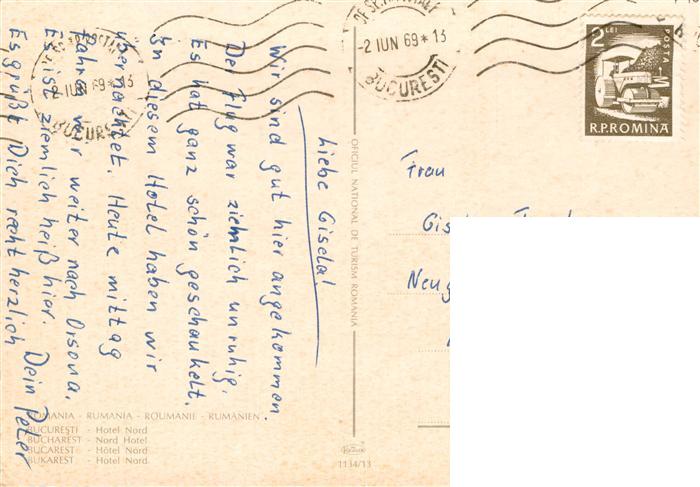 Liebe Gisela!
Wir sind gut hier angekommen.
Der Flug war ziemlich unruhig.
Es hat ganz schön geschaukelt.
In diesem Hotel haben wir
übernachtet. Heute mittag
fahren wir weiter nach Orsova.
Es ist ziemlich heiß hier.
Es grüßt Dich recht herzlich
Dein Peter
ROMANIA - RUMANIA - ROUMANIE - RUMÄNIEN
BUCUREȘTI - Hotel Nord
BUCHAREST - Nord Hotel
BUCAREST - Hôtel Nord
BUKAREST - Hotel Nord
OFICIUL NATIONAL DE TURISM ROMANIA
1134/13
-2 IUN 69 * 13
BUCUREȘTI
-2 IUN 69 * 13
BUCUREȘTI
2 LEI
POSTA
R.P.ROMINA
Frau